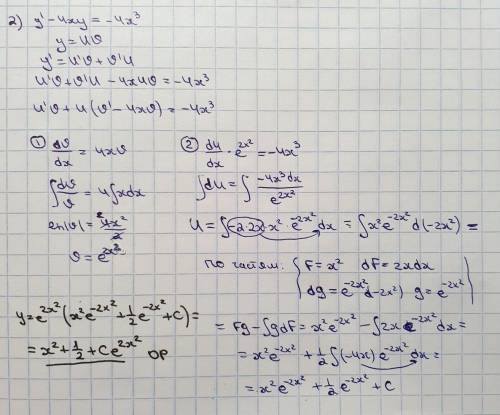 2) y' - 4xy = -4x³
y = uv
y' = u'v + v'u
u'v + v'u - 4xuv = -4x³
u'v + u(v' - 4xv) = -4x³
① dv/dx = 4xv
∫dv/v = 4∫xdx
ln|v| = 4x²/2
v = e^{2x²}
② du/dx · e^{2x²} = -4x³
∫du = ∫ -4x³dx/e^{2x²}
u = ∫-2·2x·x²·e^{-2x²}dx = ∫x²e^{-2x²}d(-2x²) =
по частям: { F = x² dF = 2xdx
dg = e^{-2x²}d(-2x²) g = e^{-2x²} }
= Fg - ∫gdF = x²e^{-2x²} - ∫2x e^{-2x²}dx =
= x²e^{-2x²} + 1/2∫(-4x)e^{-2x²}dx =
= x²e^{-2x²} + 1/2e^{-2x²} + C
y = e^{2x²}(x²e^{-2x²} + 1/2e^{-2x²} + C) =
= x² + 1/2 + Ce^{2x²} ОР